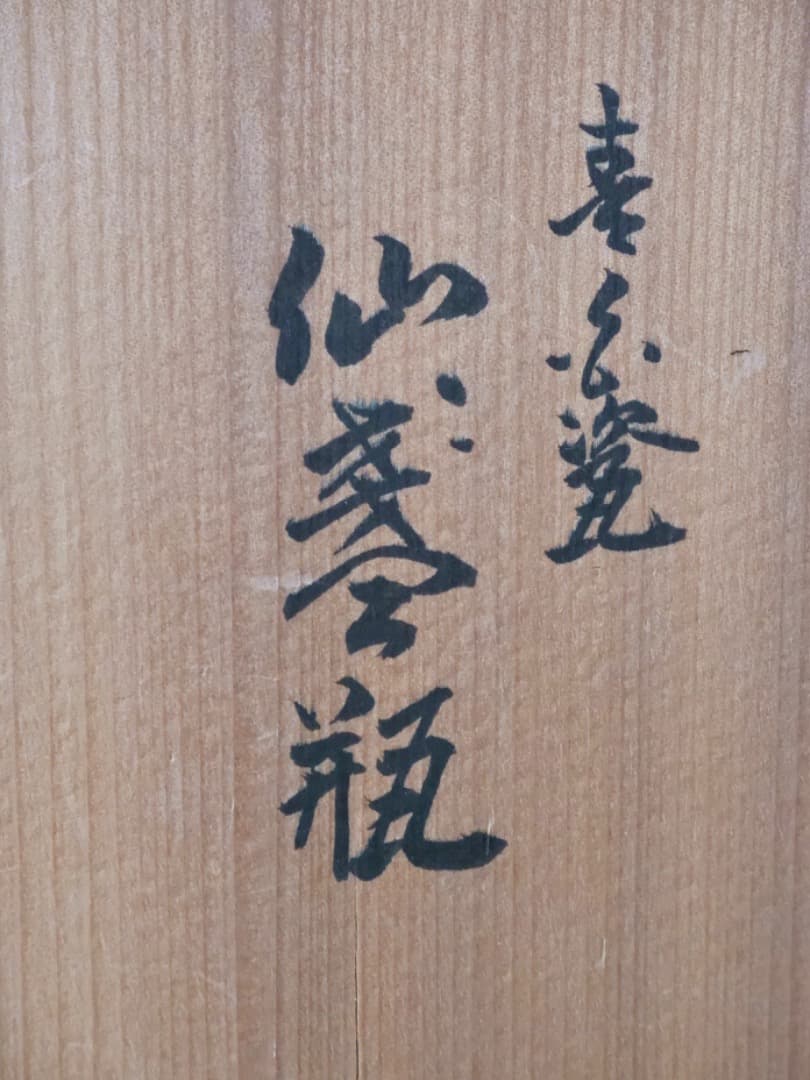 青瓷
仙盞瓶